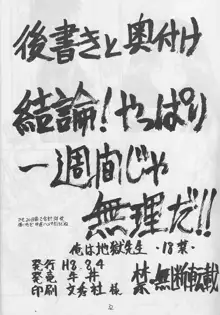 後書きと奥付け
結論!やっぱり
一週間じゃ
無理だ!!
俺は地獄先生 -18禁-
発行 H8.8.4
発売 牛井
印刷 文秀社 様
禁無断転載